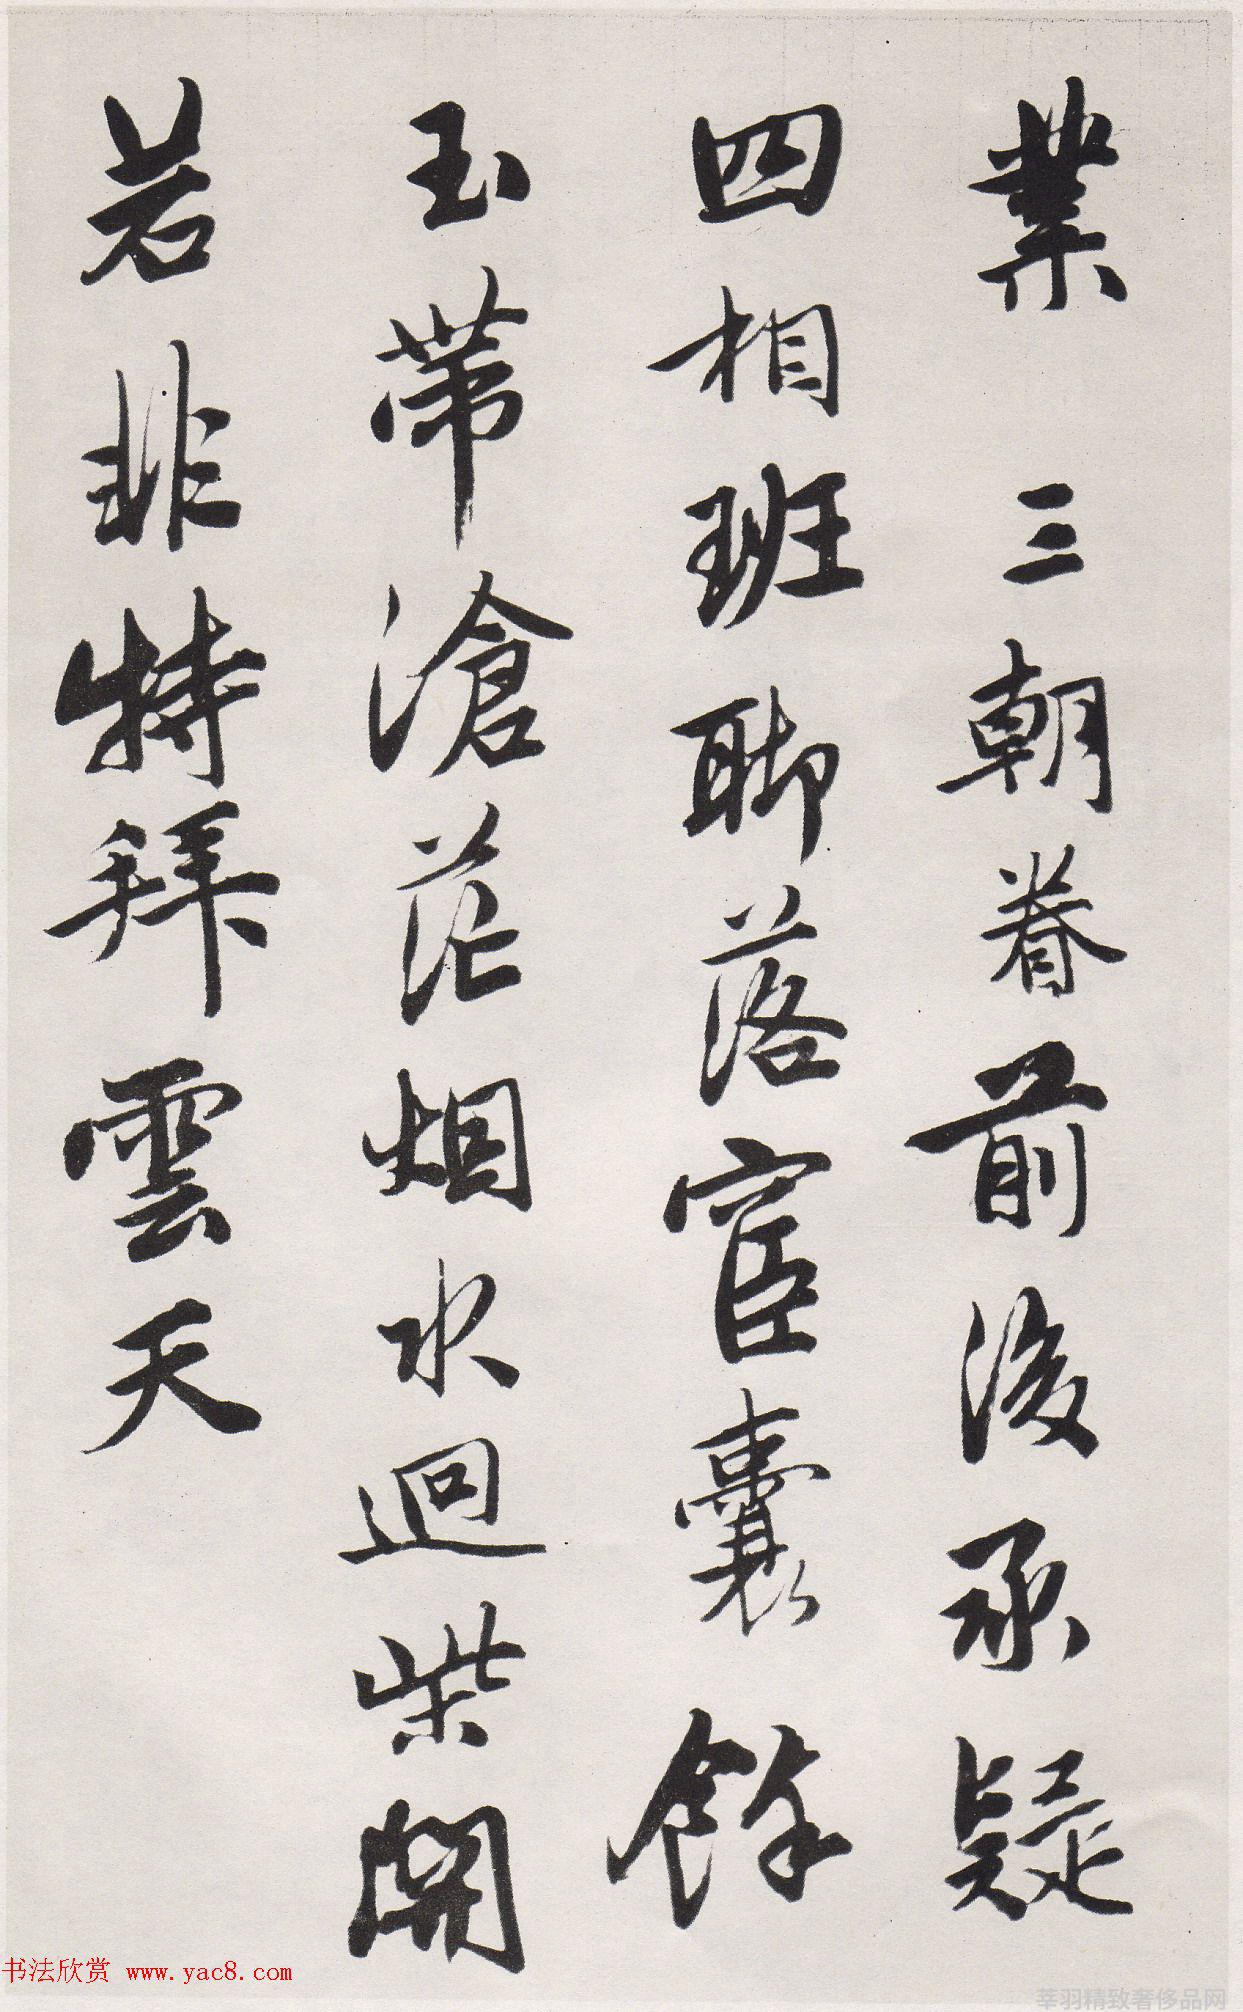 業 三朝眷前後承疑
四相班聊落宦囊餘
玉帶滄茫烟水迴柴開
若非特拜雲天
书法欣赏 www.yac8.com
莘羽精致奢侈品网